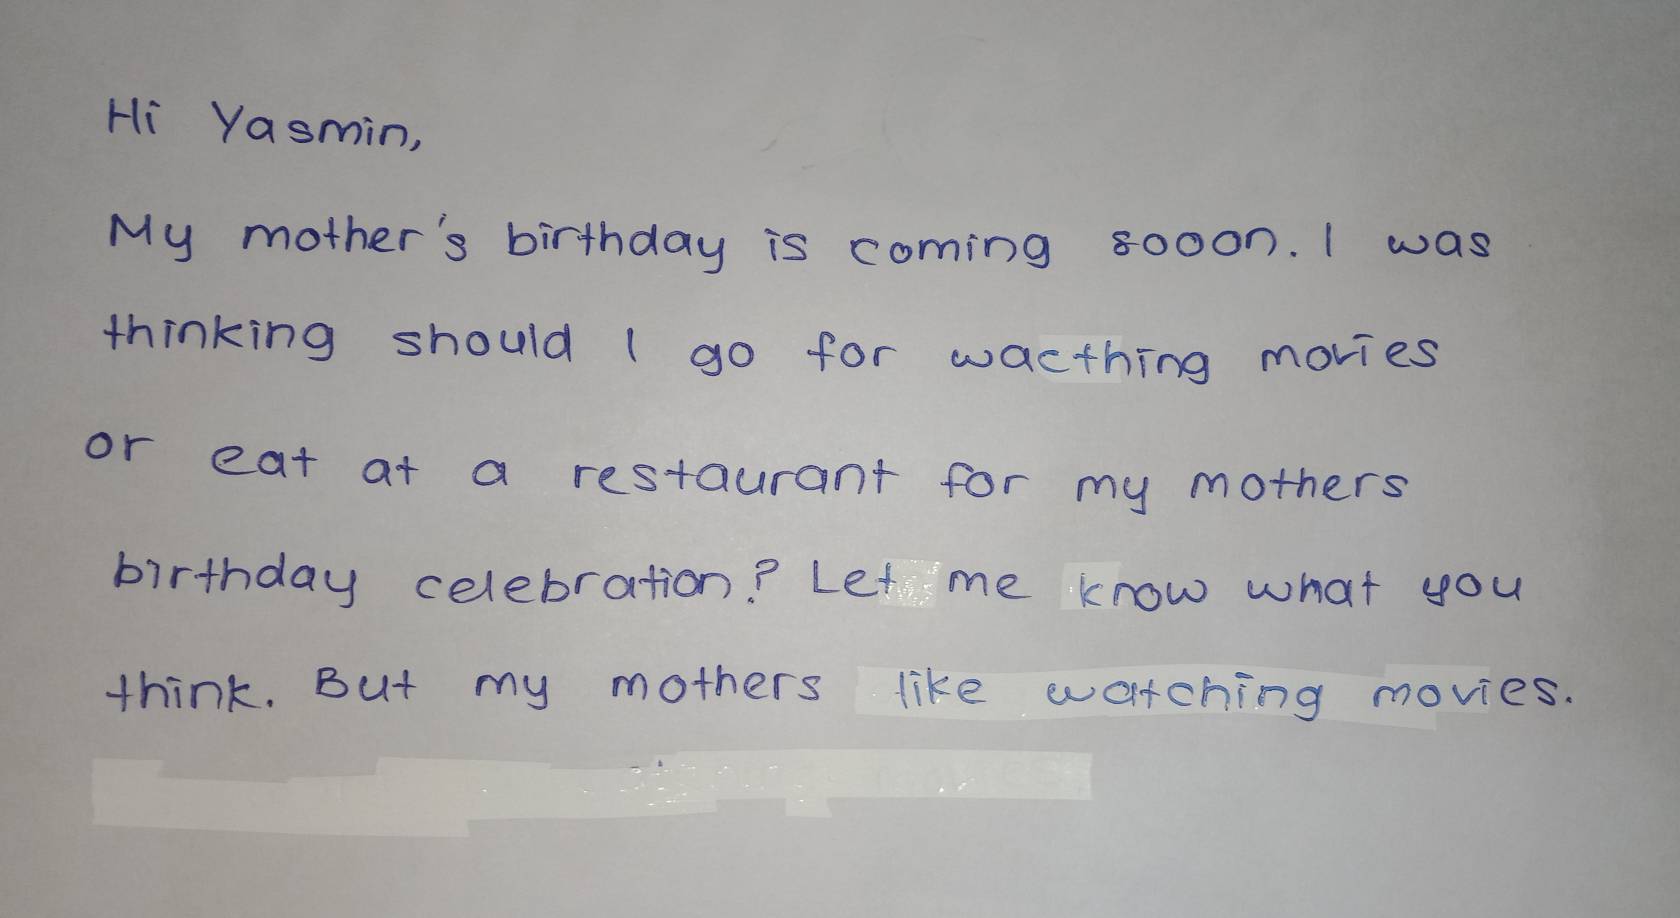 Hi Yasmin,
My mother's birthday is coming sooon. I was
thinking should I go for wacthing movies
or eat at a restaurant for my mothers
birthday celebration? Let me know what you
think. But my mothers like watching movies.